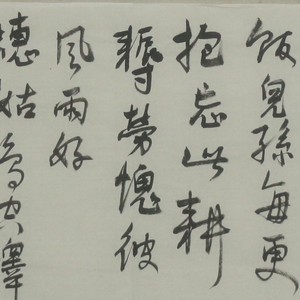 飯兒孫每更
抱忘此耕
耨勞愧彼
風雨好
姑